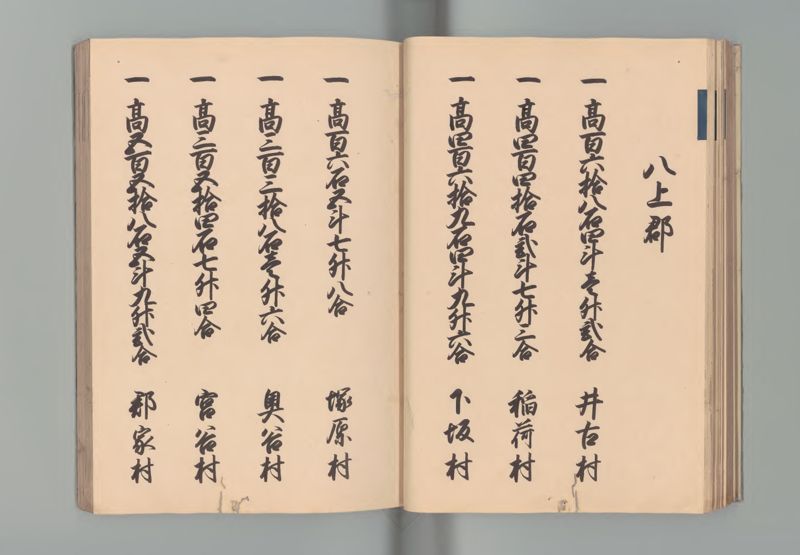 八上郡
一 高百六拾八石四斗壱升弐合 井古村
一 高四百四拾石弐斗七升三合 稲荷村
一 高四百六拾九石四斗九升六合 下坂村
一 高百六石五斗七升八合 塚原村
一 高三百三拾八石壱升六合 奥谷村
一 高三百五拾四石七升四合 宮谷村
一 高五百五拾八石五斗九升弐合 郡家村